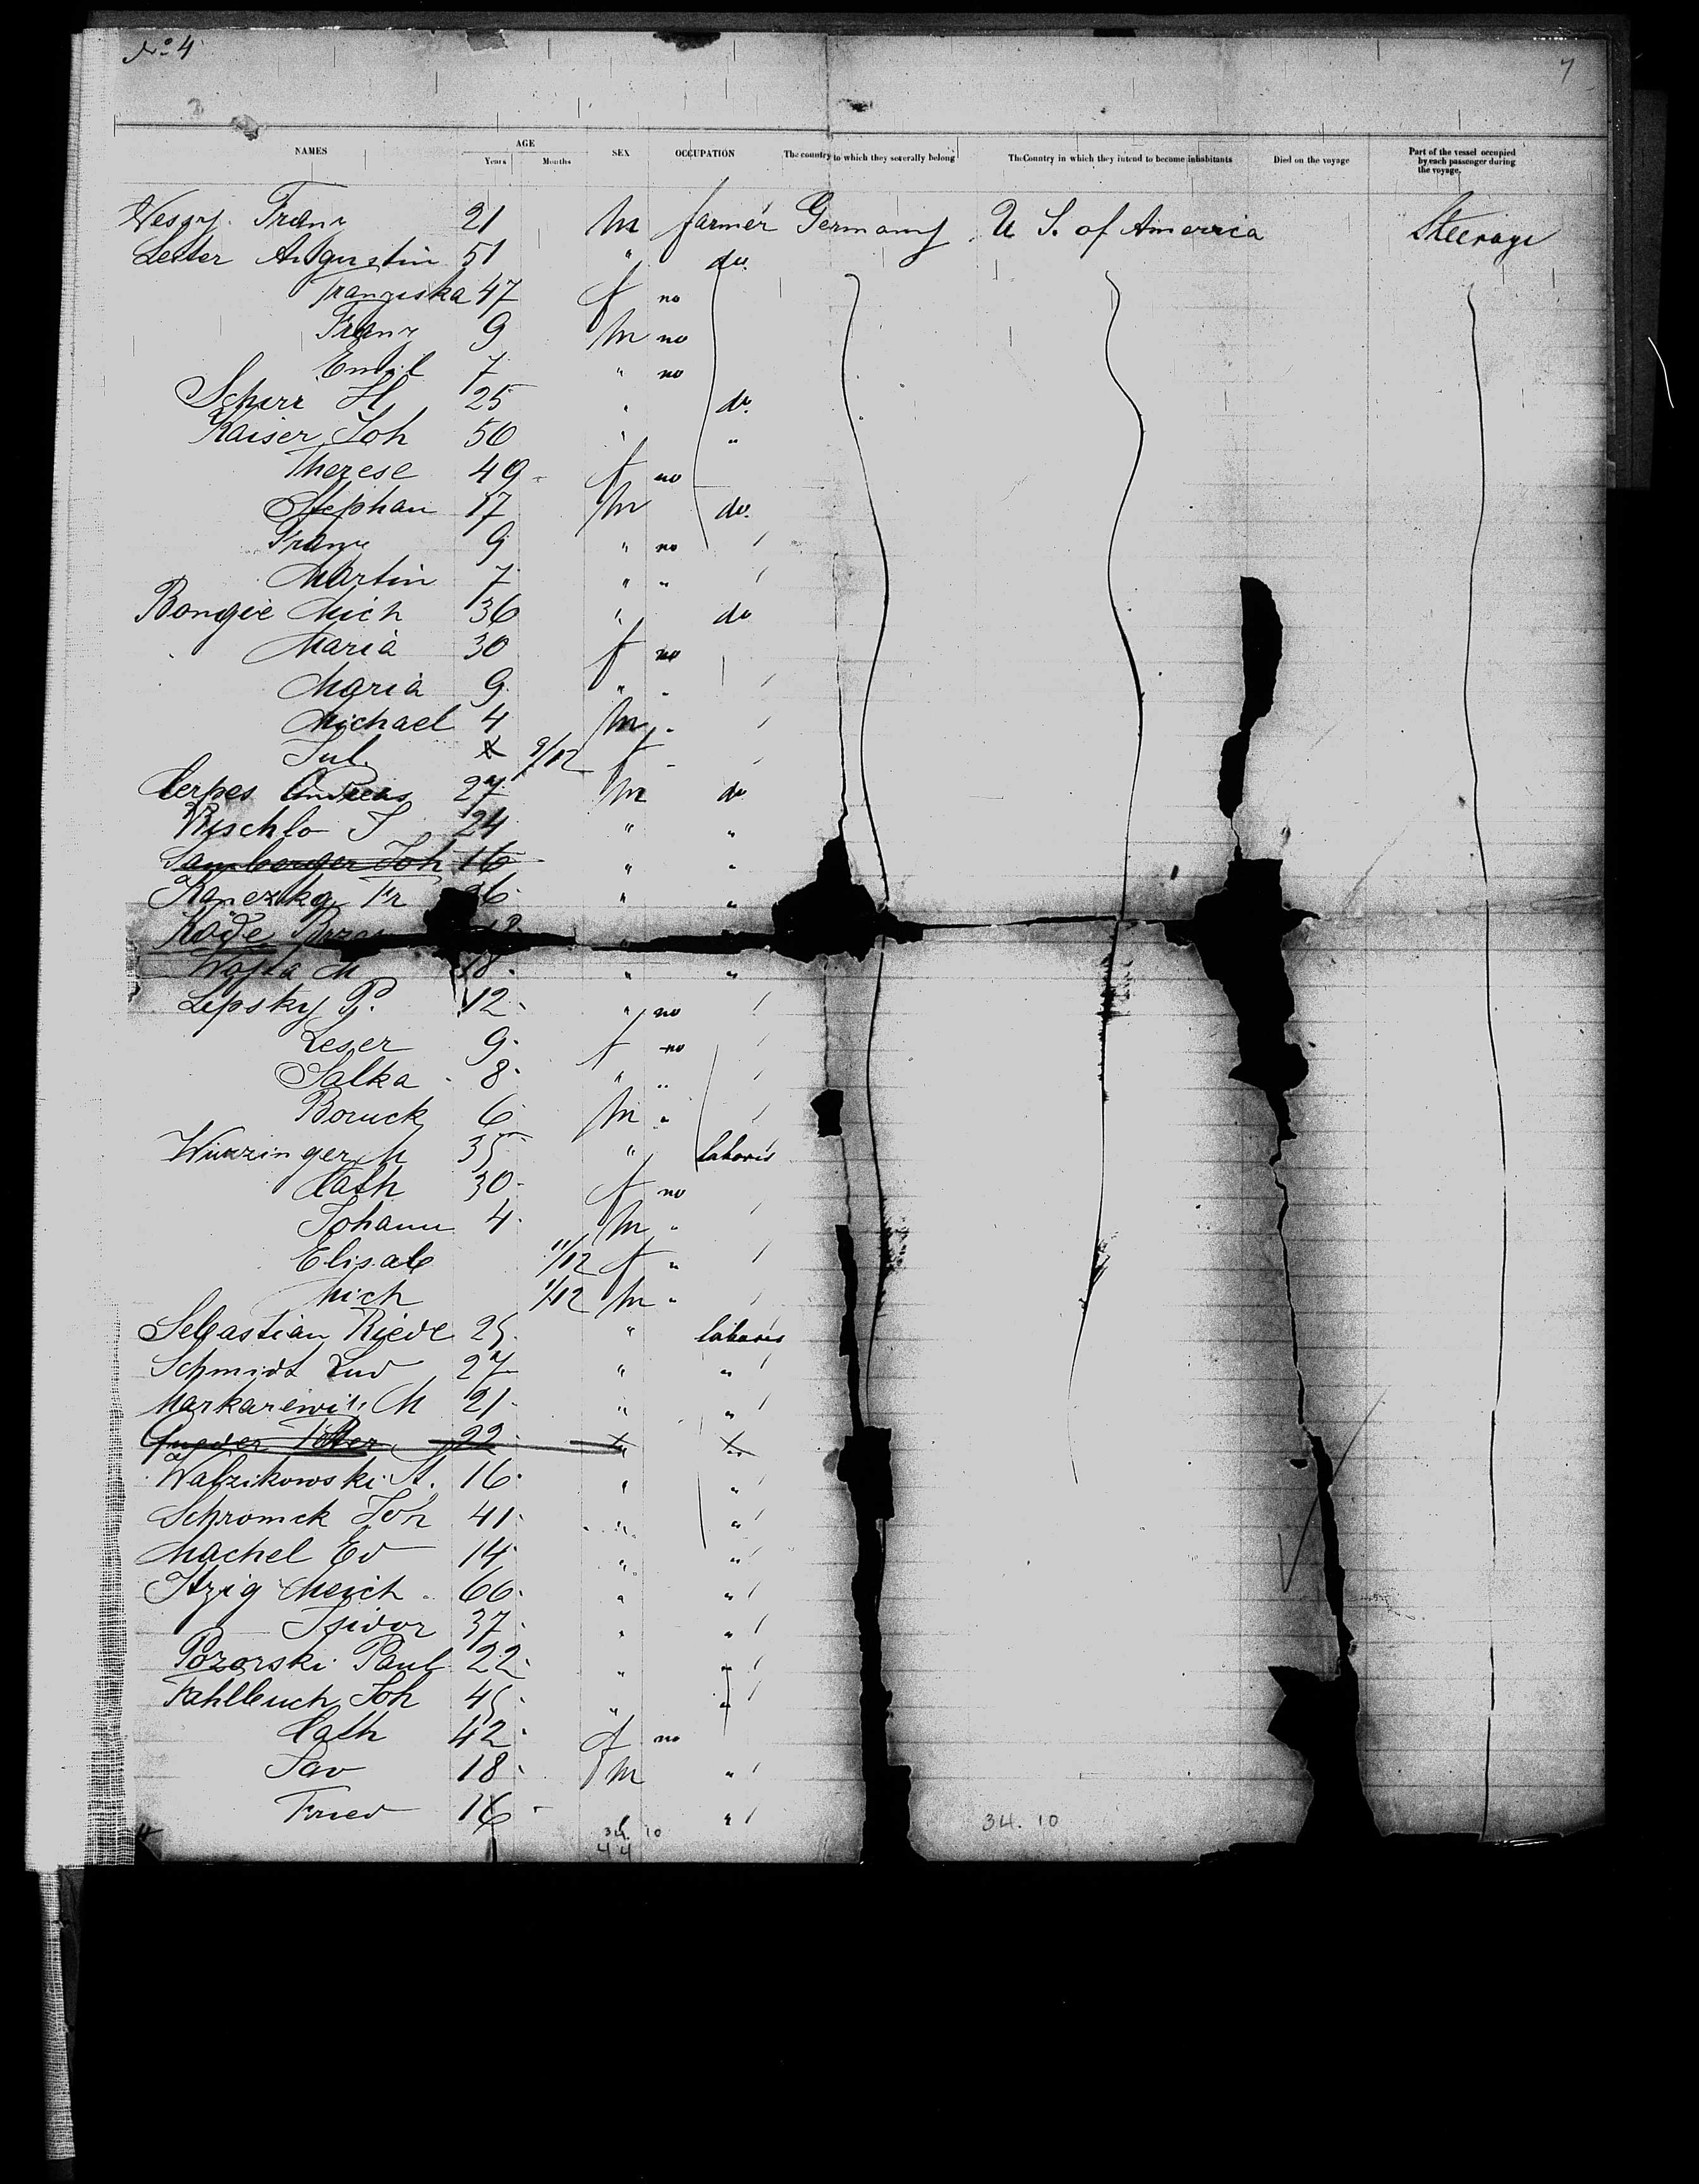 No 4
7
NAMES AGE Years Months SEX OCCUPATION The country to which they severally belong The Country in which they intend to become inhabitants Died on the voyage Part of the vessel occupied by each passenger during the voyage.
Franz 21 m farmer Germany U S. of America Steerage
Lester Augustin 51 " do.
Franziska 47 f no
Franz 9 m no
Emil 7 " no
Scherr H 25 " do.
Kaiser Joh 50 " "
Therese 49 f no
Stephan 17 m do.
Franz 9 " no
Martin 7 " "
Bongie Mich 36 " do
Maria 30 f no
Maria 9 " "
Michael 4 m "
Jul. 9/12 f "
Cerpes Andreas 27 m do
Wischlo J 24 " "
Samberger Joh 16 " "
Kanezka Fr 26 " "
Kode
Wojta M 18 " "
Lepsky P. 12 " no
Leser 9 f no
Salka 8 " "
Boruck 6 m "
Wurzinger M 35 " labores
Cath 30 f no
Johann 4 m "
Elisab 11/12 f "
Mich 1/12 m "
Sebastian Riede 25 " labores
Schmidt Lud 27 " "
Markarewi M 21 " "
Peter 22
Walzikowski St. 16 " "
Schromek Joh 41 " "
Machel Ed 14 " "
Itzig Meich 66 " "
Isidor 37 " "
Pozorski Paul 22 " "
Fahlbuch Joh 45 " "
Cath 42 f no
Sav 18 m "
Fried 16 "
34. 10 34. 10
44